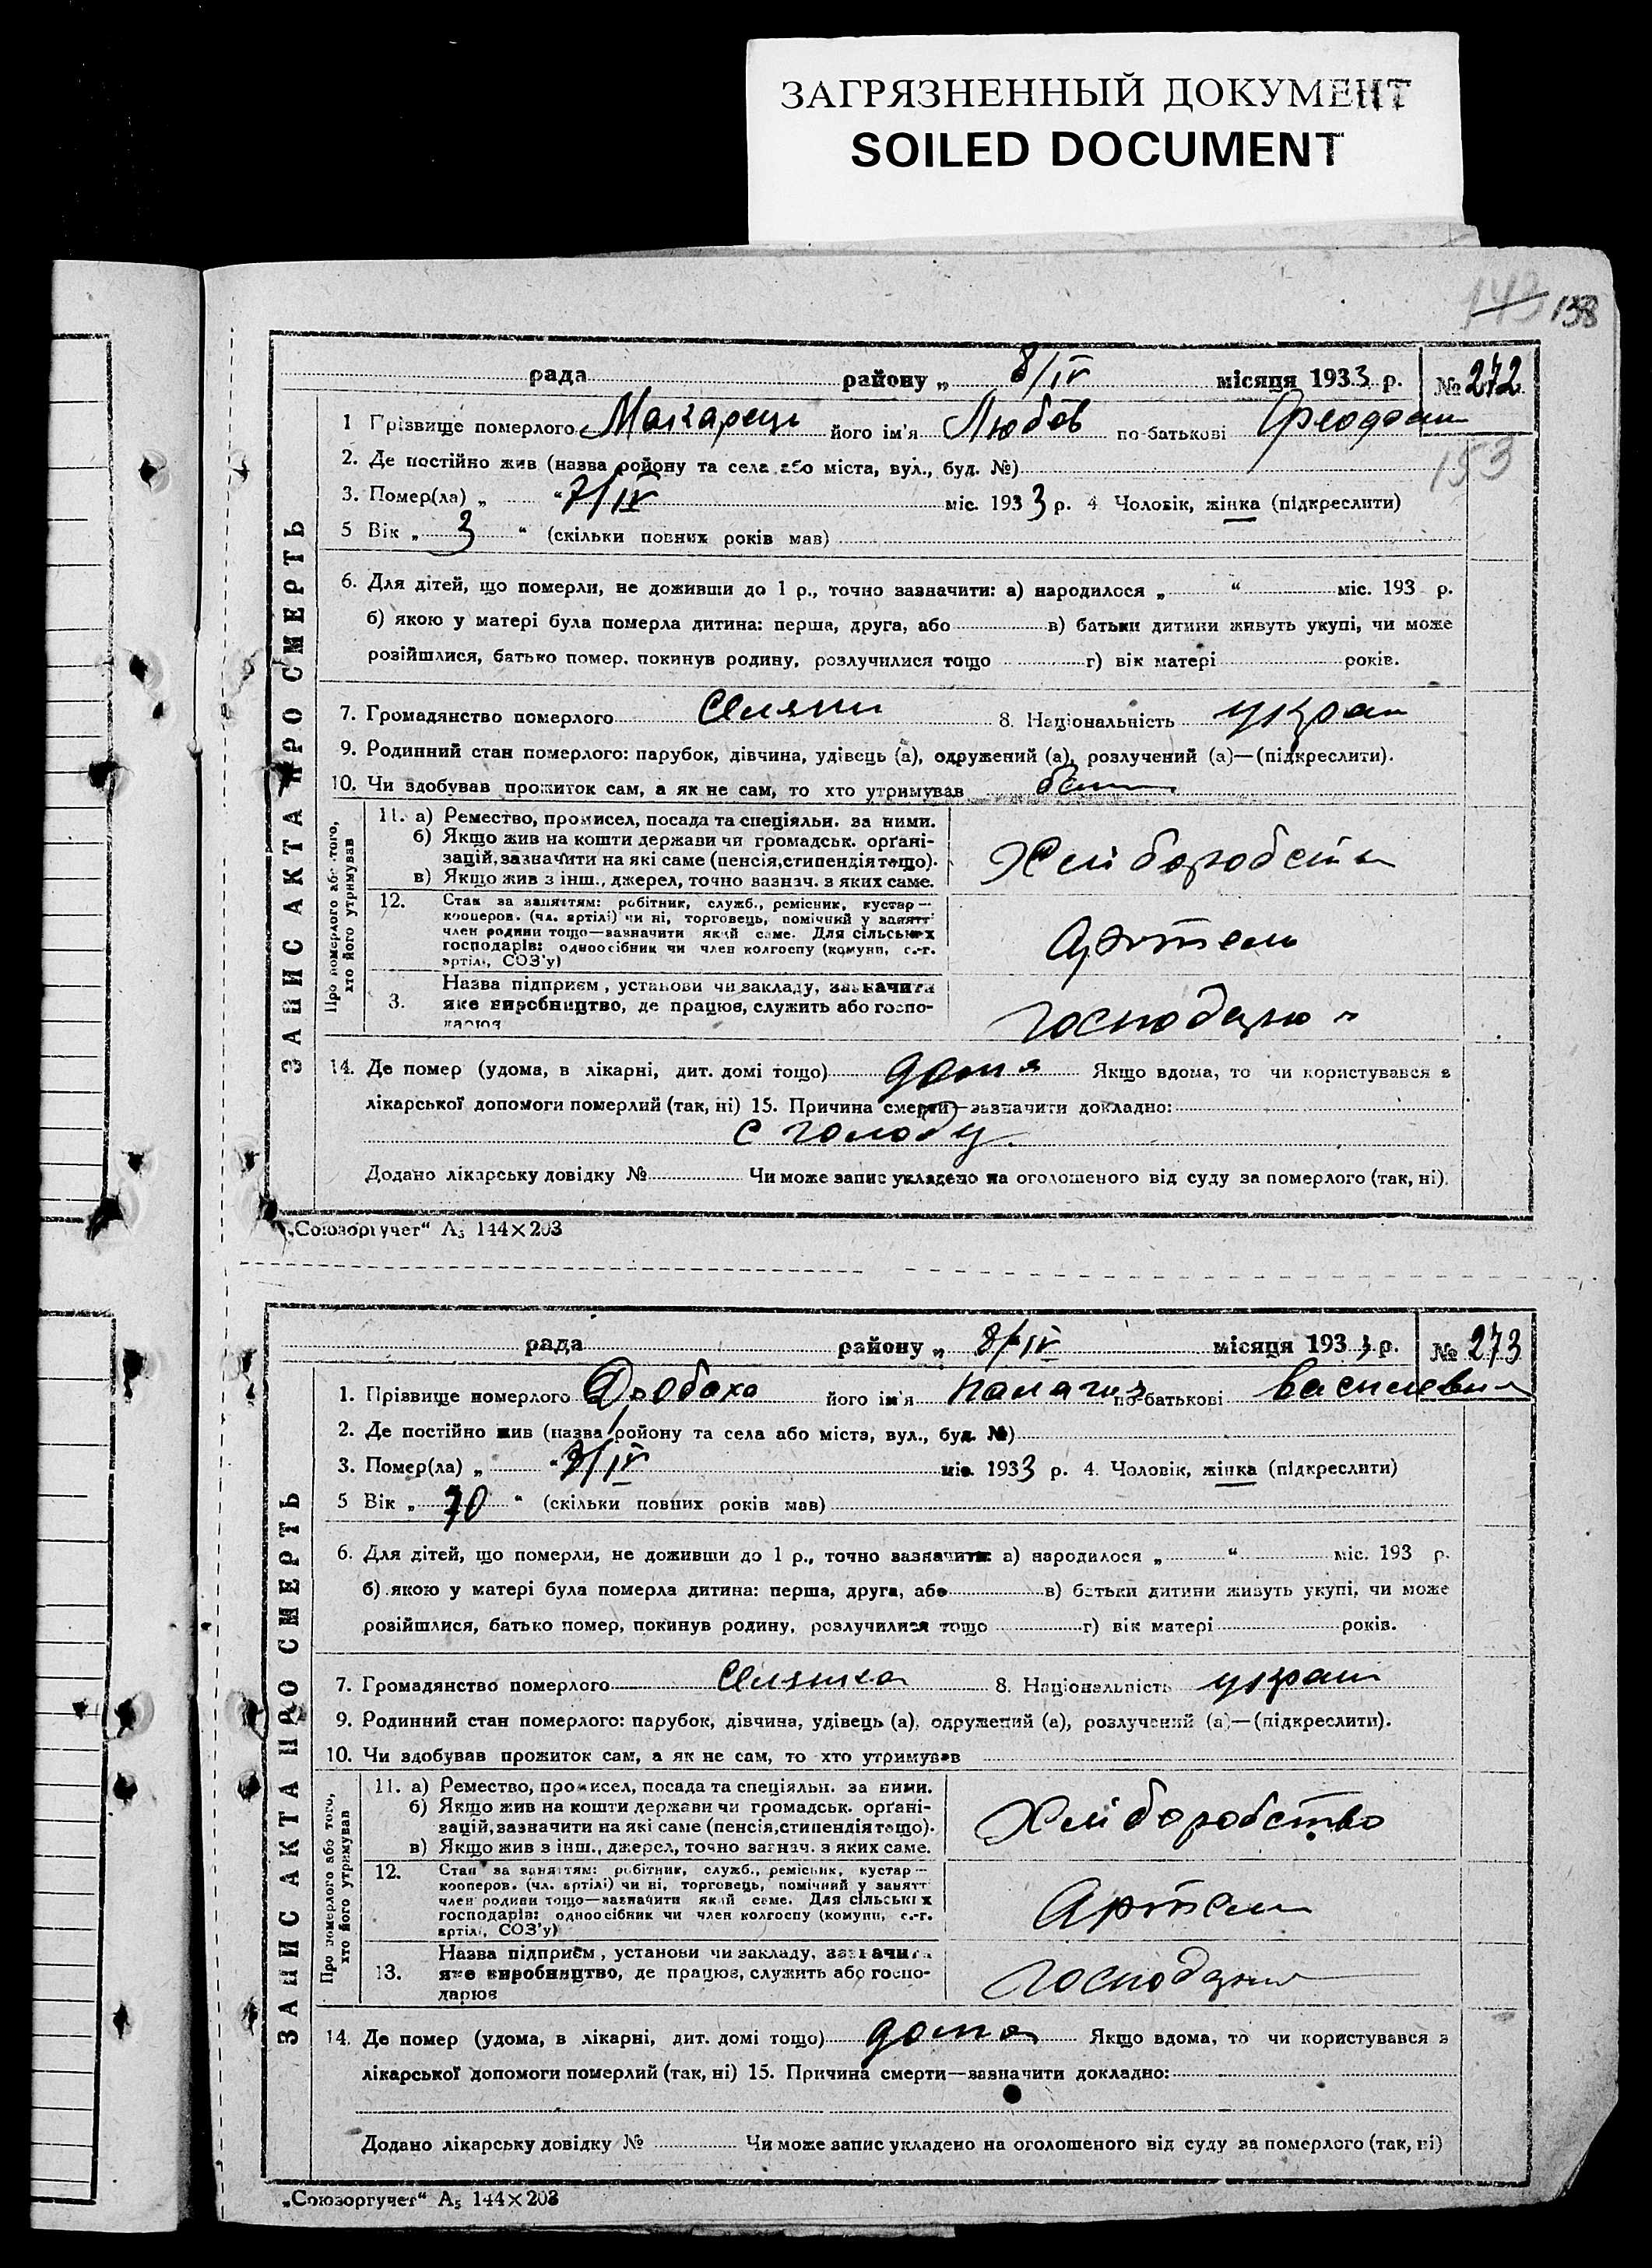 ЗАГРЯЗНЕННЫЙ ДОКУМЕНТ
SOILED DOCUMENT
143 138
рада району „ 8/IV місяця 1933 р. № 272
1 Прізвище померлого Макарець його ім'я Любов по-батькові
153
2. Де постійно жив (назва ройону та села або міста, вул., буд. №)
3. Помер(ла) „ “ 7/IV міс. 1933 р. 4 Чоловік, жінка (підкреслити)
5 Вік „ 3 “ (скільки повних років мав)
6. Для дітей, що померли, не доживши до 1 р., точно зазначити: а) народилося „ “ міс. 193 р.
б) якою у матері була померла дитина: перша, друга, або в) батьки дитини живуть укупі, чи може
розійшлися, батько помер, покинув родину, розлучилися тощо г) вік матері років.
7. Громадянство померлого 8. Національність украи
9. Родинний стан померлого: парубок, дівчина, удівець (а), одружений (а), розлучений (а)—(підкреслити).
10. Чи здобував прожиток сам, а як не сам, то хто утримував
ЗАПИС АКТА ПРО СМЕРТЬ
Про померлого або того, хто його утримував
11. а) Ремество, промисел, посада та спеціяльн. за ними.
б) Якщо жив на кошти держави чи громадськ. орґані-
зацій, зазначити на які саме (пенсія, стипендія тощо).
в) Якщо жив з інш., джерел, точно зазнач. з яких саме.
Хліборобств
12. Стан за заняттям: робітник, служб., ремісник, кустар—
кооперов. (чл. артілі) чи ні, торговець, помічний у занятт
член родини тощо—зазначити який саме. Для сільських
господарів: одноосібник чи член колгоспу (комуни, с.-г.
артілі, СОЗ'у)
Артель
3. Назва підприєм, установи чи закладу, зазначити
яке виробництво, де працює, служить або госпо-
дарює
14. Де помер (удома, в лікарні, дит. домі тощо) дома Якщо вдома, то чи користувався з
лікарської допомоги померлий (так, ні) 15. Причина смерти—зазначити докладно:
с голоду.
Додано лікарську довідку № Чи може запис укладено на оголошеного від суду за померлого (так, ні).
„Союзоргучет“ А5 144×203
рада району „ 8/IV місяця 1933 р. № 273
1. Прізвище померлого його ім'я по-батькові
2. Де постійно жив (назва ройону та села або міста, вул., буд. №)
3. Помер(ла) „ “ /IV міс. 1933 р. 4. Чоловік, жінка (підкреслити)
5 Вік „ 70 “ (скільки повних років мав)
6. Для дітей, що померли, не доживши до 1 р., точно зазначити: а) народилося „ “ міс. 193 р.
б) якою у матері була померла дитина: перша, друга, або в) батьки дитини живуть укупі, чи може
розійшлися, батько помер, покинув родину, розлучилися тощо г) вік матері років.
7. Громадянство померлого Селянка 8. Національність украи
9. Родинний стан померлого: парубок, дівчина, удівець (а), одружений (а), розлучений (а)—(підкреслити).
10. Чи здобував прожиток сам, а як не сам, то хто утримував
ЗАПИС АКТА ПРО СМЕРТЬ
Про померлого або того, хто його утримував
11. а) Ремество, промисел, посада та спеціяльн. за ними.
б) Якщо жив на кошти держави чи громадськ. орґані-
зацій, зазначити на які саме (пенсія, стипендія тощо).
в) Якщо жив з інш., джерел, точно зазнач. з яких саме.
Хліборобство
12. Стан за заняттям: робітник, служб., ремісник, кустар—
кооперов. (чл. артілі) чи ні, торговець, помічний у занятт
член родини тощо—зазначити який саме. Для сільських
господарів: одноосібник чи член колгоспу (комуни, с.-г.
артілі, СОЗ'у)
Артели
13. Назва підприєм, установи чи закладу, зазначити
яке виробництво, де працює, служить або госпо-
дарює
14. Де помер (удома, в лікарні, дит. домі тощо) дома Якщо вдома, то чи користувався з
лікарської допомоги померлий (так, ні) 15. Причина смерти—зазначити докладно:
Додано лікарську довідку № Чи може запис укладено на оголошеного від суду за померлого (так, ні)
„Союзоргучет“ А5 144×203